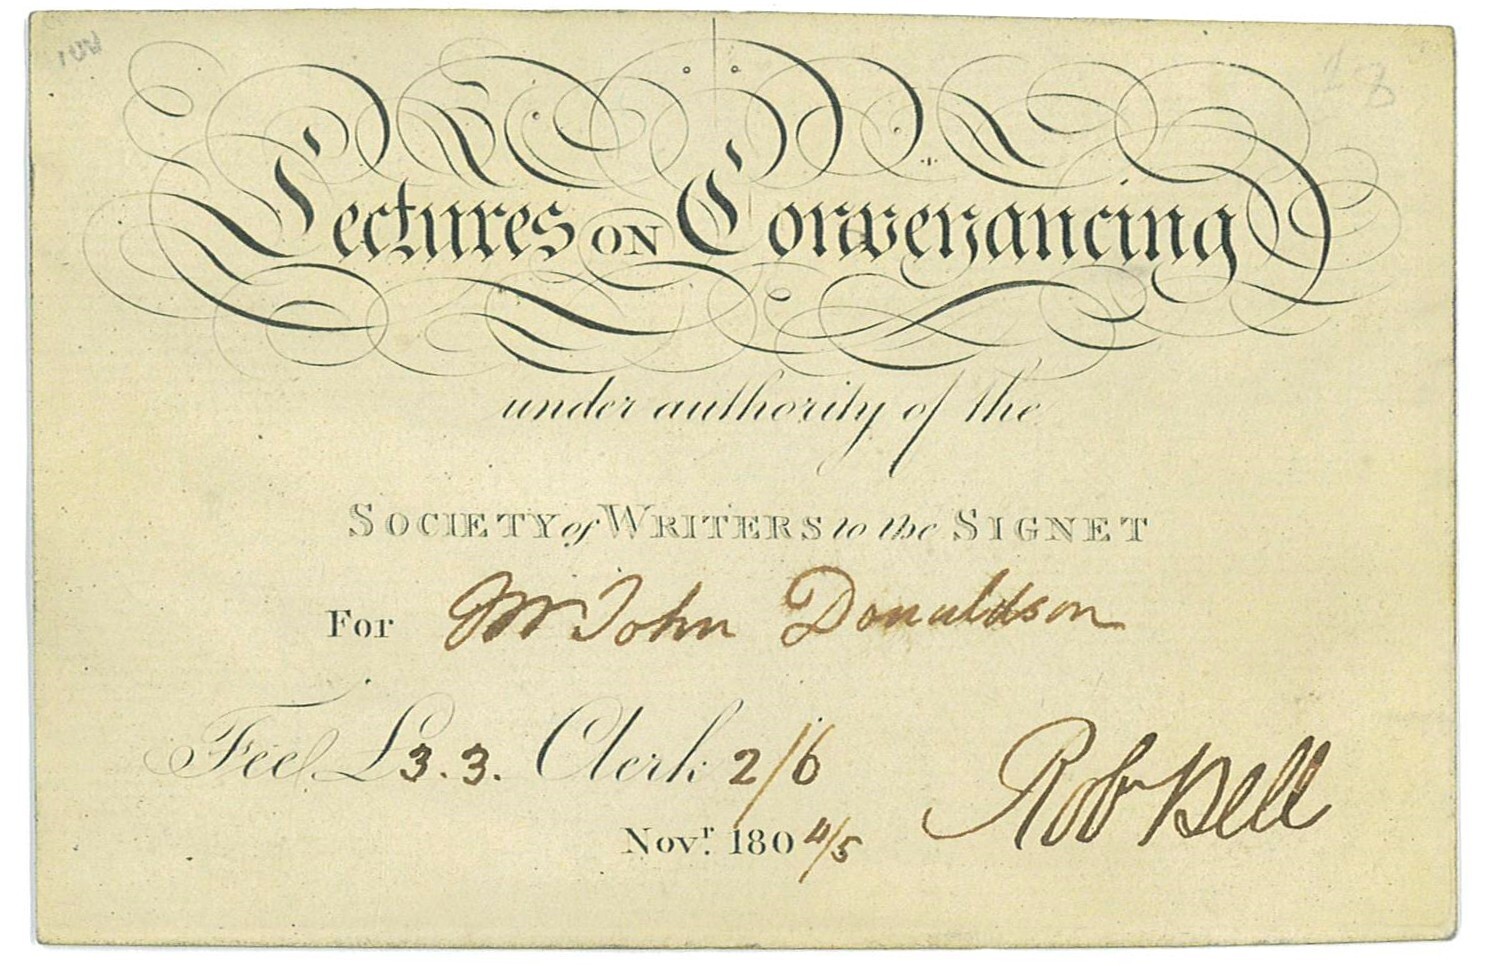 Lectures ON Conveyancing
under authority of the
SOCIETY of WRITERS to the SIGNET
For Mr John Donaldson
Fee £3.3. Clerk 2/6
Rob Bell
Novr. 1804/5